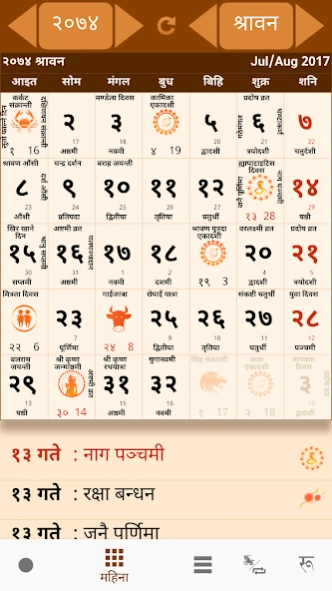 २०७४ श्रावन
२०७४ श्रावन Jul/Aug 2017
आइत सोम मंगल बुध बिहि शुक्र शनि
कर्कट संक्रान्ती मण्डेला दिवस कामिका एकादशी प्रदोष व्रत
२ ३ ५ ६ ७
१ 16 17 अष्टमी 18 नवमी ४ 19 20 द्वादशी 21 त्रयोदशी 22 चतुर्दशी
श्रावण औंसी चन्द्र दर्शन बराह जयन्ती
८ ९ १० ११ १२ १४
23 औंसी 24 प्रतिपदा 25 द्वितीया 26 तृतिया 27 चतुर्थी १३ 28 29 षष्ठी
खिर खाने दिन अष्टमी व्रत श्रावण पुत्रदा एकादशी वरलक्ष्मी व्रत प्रदोष व्रत
१५ १६ १७ १८ २० २१
30 सप्तमी 31 अष्टमी 1 नवमी 2 दशमी १९ 3 4 द्वादशी 5 त्रयोदशी
मित्रता दिवस गाईजात्रा रोपाईं यात्रा संकष्टी चतुर्थी युवा दिवस
२३ २५ २६ २७ २८
२२ 6 7 पूर्णिमा २४ 8 9 द्वितीया 10 तृतिया 11 चतुर्थी 12 पञ्चमी
बलराम जयन्ती श्री कृष्ण जन्माष्टमी श्री कृष्ण रथयात्रा मुगानवमी सिंह संक्रान्ती अजा एकादशी
२९ ३१ ३२ ३
13 षष्ठी ३० 14 15 अष्टमी 16 नवमी १ 17 २ 18
१३ गते : नाग पञ्चमी
१३ गते : रक्षा बन्धन
१३ गते : जनै पूर्णिमा
महिना